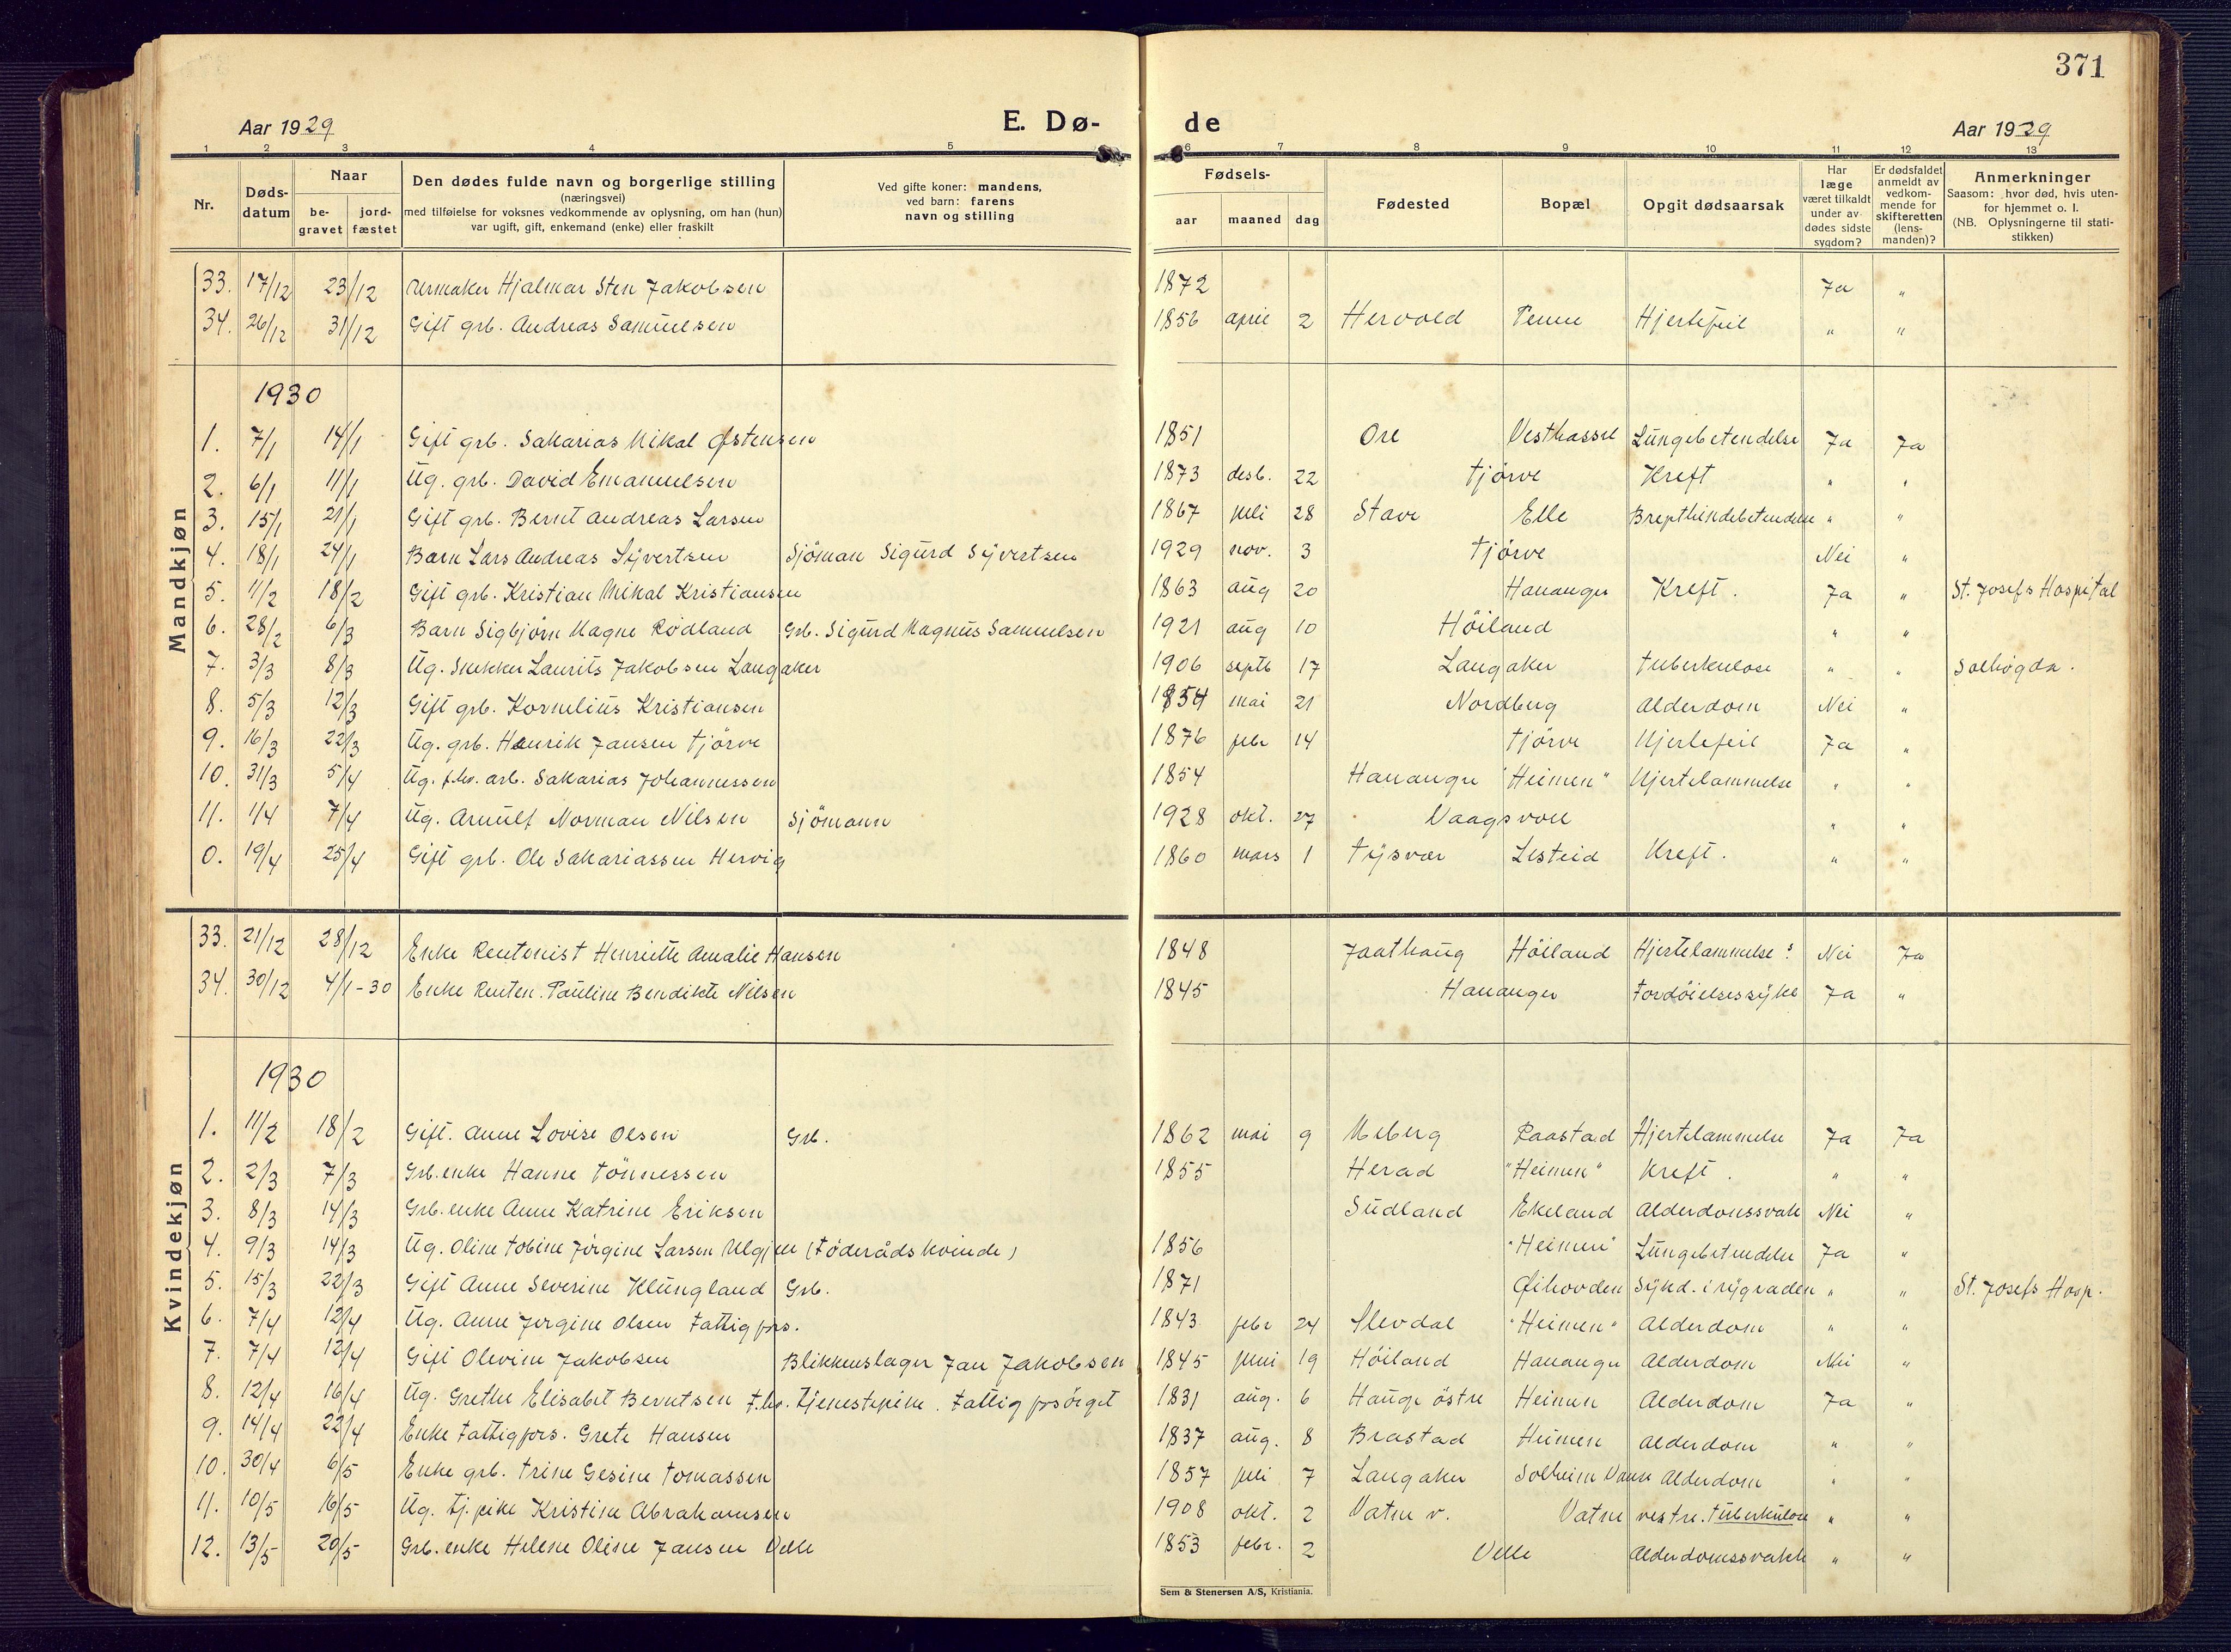 371
Aar 1929 E. Dø- de Aar 1929
1 2 3 4 5 6 7 8 9 10 11 12 13
Nr. Døds-datum Naar be-gravet jord-fæstet Den dødes fulde navn og borgerlige stilling (næringsvei) med tilføielse for voksnes vedkommende av oplysning, om han (hun) var ugift, gift, enkemand (enke) eller fraskilt Ved gifte koner: mandens, ved barn: farens navn og stilling Fødsels- aar maaned dag Fødested Bopæl Opgit dødsaarsak Har læge været tilkaldt under av-dødes sidste sygdom? Er dødsfaldet anmeldt av vedkom-mende for skifteretten (lens-manden)? Anmerkninger Saasom: hvor død, hvis uten-for hjemmet o. l. (NB. Oplysningerne til stati-stikken)
Mandkjøn
33. 17/12 23/12 Urmaker Hjalmar Sten Jakobsen 1872 Ja "
34. 26/12 31/12 Gift grb. Andreas Samuelsen 1856 april 2 Hervold Penne Hjertefeil " "
1930
1. 7/1 14/1 Gift grb. Sakarias Mikal Østensen 1851 Ore Vesthassel Lungebetendelse Ja Ja
2. 6/1 11/1 Ug. grb. David Emanuelsen 1873 desb. 22 Tjörve Kreft " "
3. 15/1 21/1 Gift grb. Bernt Andreas Larsen 1867 juli 28 Stave Elle " "
4. 18/1 24/1 Barn Lars Andreas Syvertsen Sjöman Sigurd Syvertsen 1929 nov. 3 Tjörve Nei "
5. 11/2 18/2 Gift grb. Kristian Mikal Kristiansen 1863 aug 20 Hananger Kreft. Ja " St. Josefs Hospital
6. 28/2 6/3 Barn Sigbjörn Magne Rödland Grb. Sigurd Magnus Samuelsen 1921 aug 10 Höiland " "
7. 3/3 8/3 Ug. Snekker Laurits Jakobsen Langaker 1906 septb 17 Langaker Tuberkulose " " Solhøgda.
8. 5/3 12/3 Gift grb. Kornelius Kristiansen 1854 mai 21 Nordberg Alderdom Nei "
9. 16/3 22/3 Ug. grb. Henrik Jansen Tjörve 1876 febr 14 Tjörve Hjertefeil Ja "
10. 31/3 5/4 Ug. f.hv. arb. Sakarias Johannessen 1854 Hananger "Heimen" Hjertelammelse " "
11. 1/4 7/4 Ug. Arnulf Norman Nilsen Sjömann 1928 okt. 27 Vaagsvoll " "
0. 19/4 25/4 Gift grb. Ole Sakariassen Hervig 1860 mars 1 Tysvær Lesteid Kreft. " "
33. 21/12 28/12 Enke Rentenist Henriette Amalie Hansen 1848 Jaathaug Höiland Hjertelammelse? Nei Ja
34. 30/12 4/1-30 Enke Renten. Pauline Bendikte Nilsen 1845 Hananger Fordöielsessyke Ja "
1930
Kvindekjøn
1. 11/2 18/2 Gift. Anne Lovise Olsen Grb. 1862 mai 9 Meberg Raastad Hjertelammelse Ja Ja
2. 2/3 7/3 Grb. enke Hanne Tönnessen 1855 Herad "Heimen" Kreft. " "
3. 8/3 14/3 Grb. enke Anne Katrine Eriksen Sudland Ekeland Alderdomssvak Nei "
4. 9/3 14/3 Ug. Oline Tobine Jörgine Larsen Ulgjel (Föderådskvinde) 1856 "Heimen" Lungebetendelse Ja "
5. 15/3 22/3 Gift Anne Severine Klungland Grb. 1871 Øihovden Sykd. i rygraden " " St. Josefs Hosp.
6. 7/4 12/4 Ug. Anne Jorgine Olsen Fattigfors. 1843 febr 24 Slevdal "Heimen" Alderdom " "
7. 7/4 12/4 Gift Olevine Jakobsen Blikkenslager Jan Jakobsen 1845 juni 19 Höiland Hananger Alderdom Nei "
8. 12/4 16/4 Ug. Grethe Elisabet Berntsen f.hv. tjenestepike. Fattigforsörget 1831 aug. 6 Hauge östre Heimen Alderdom Ja "
9. 14/4 22/4 Enke Fattigfors. Grete Hansen 1837 aug. 8 Brastad Heimen Alderdom " "
10. 30/4 6/5 Enke grb. Trine Gesine Tomassen 1857 juli 7 Langaker Solheim Vanse Alderdom " "
11. 10/5 16/5 Ug. tj. pike Kristine Abrahamsen 1908 okt. 2 Vatne v. Vatne vestre. Tuberkulose " "
12. 13/5 20/5 Grb. enke Helene Oline Jansen Velle 1853 febr. 2 Velle Alderdomssvakh " "
Sem & Stenersen A/S, Kristiania.